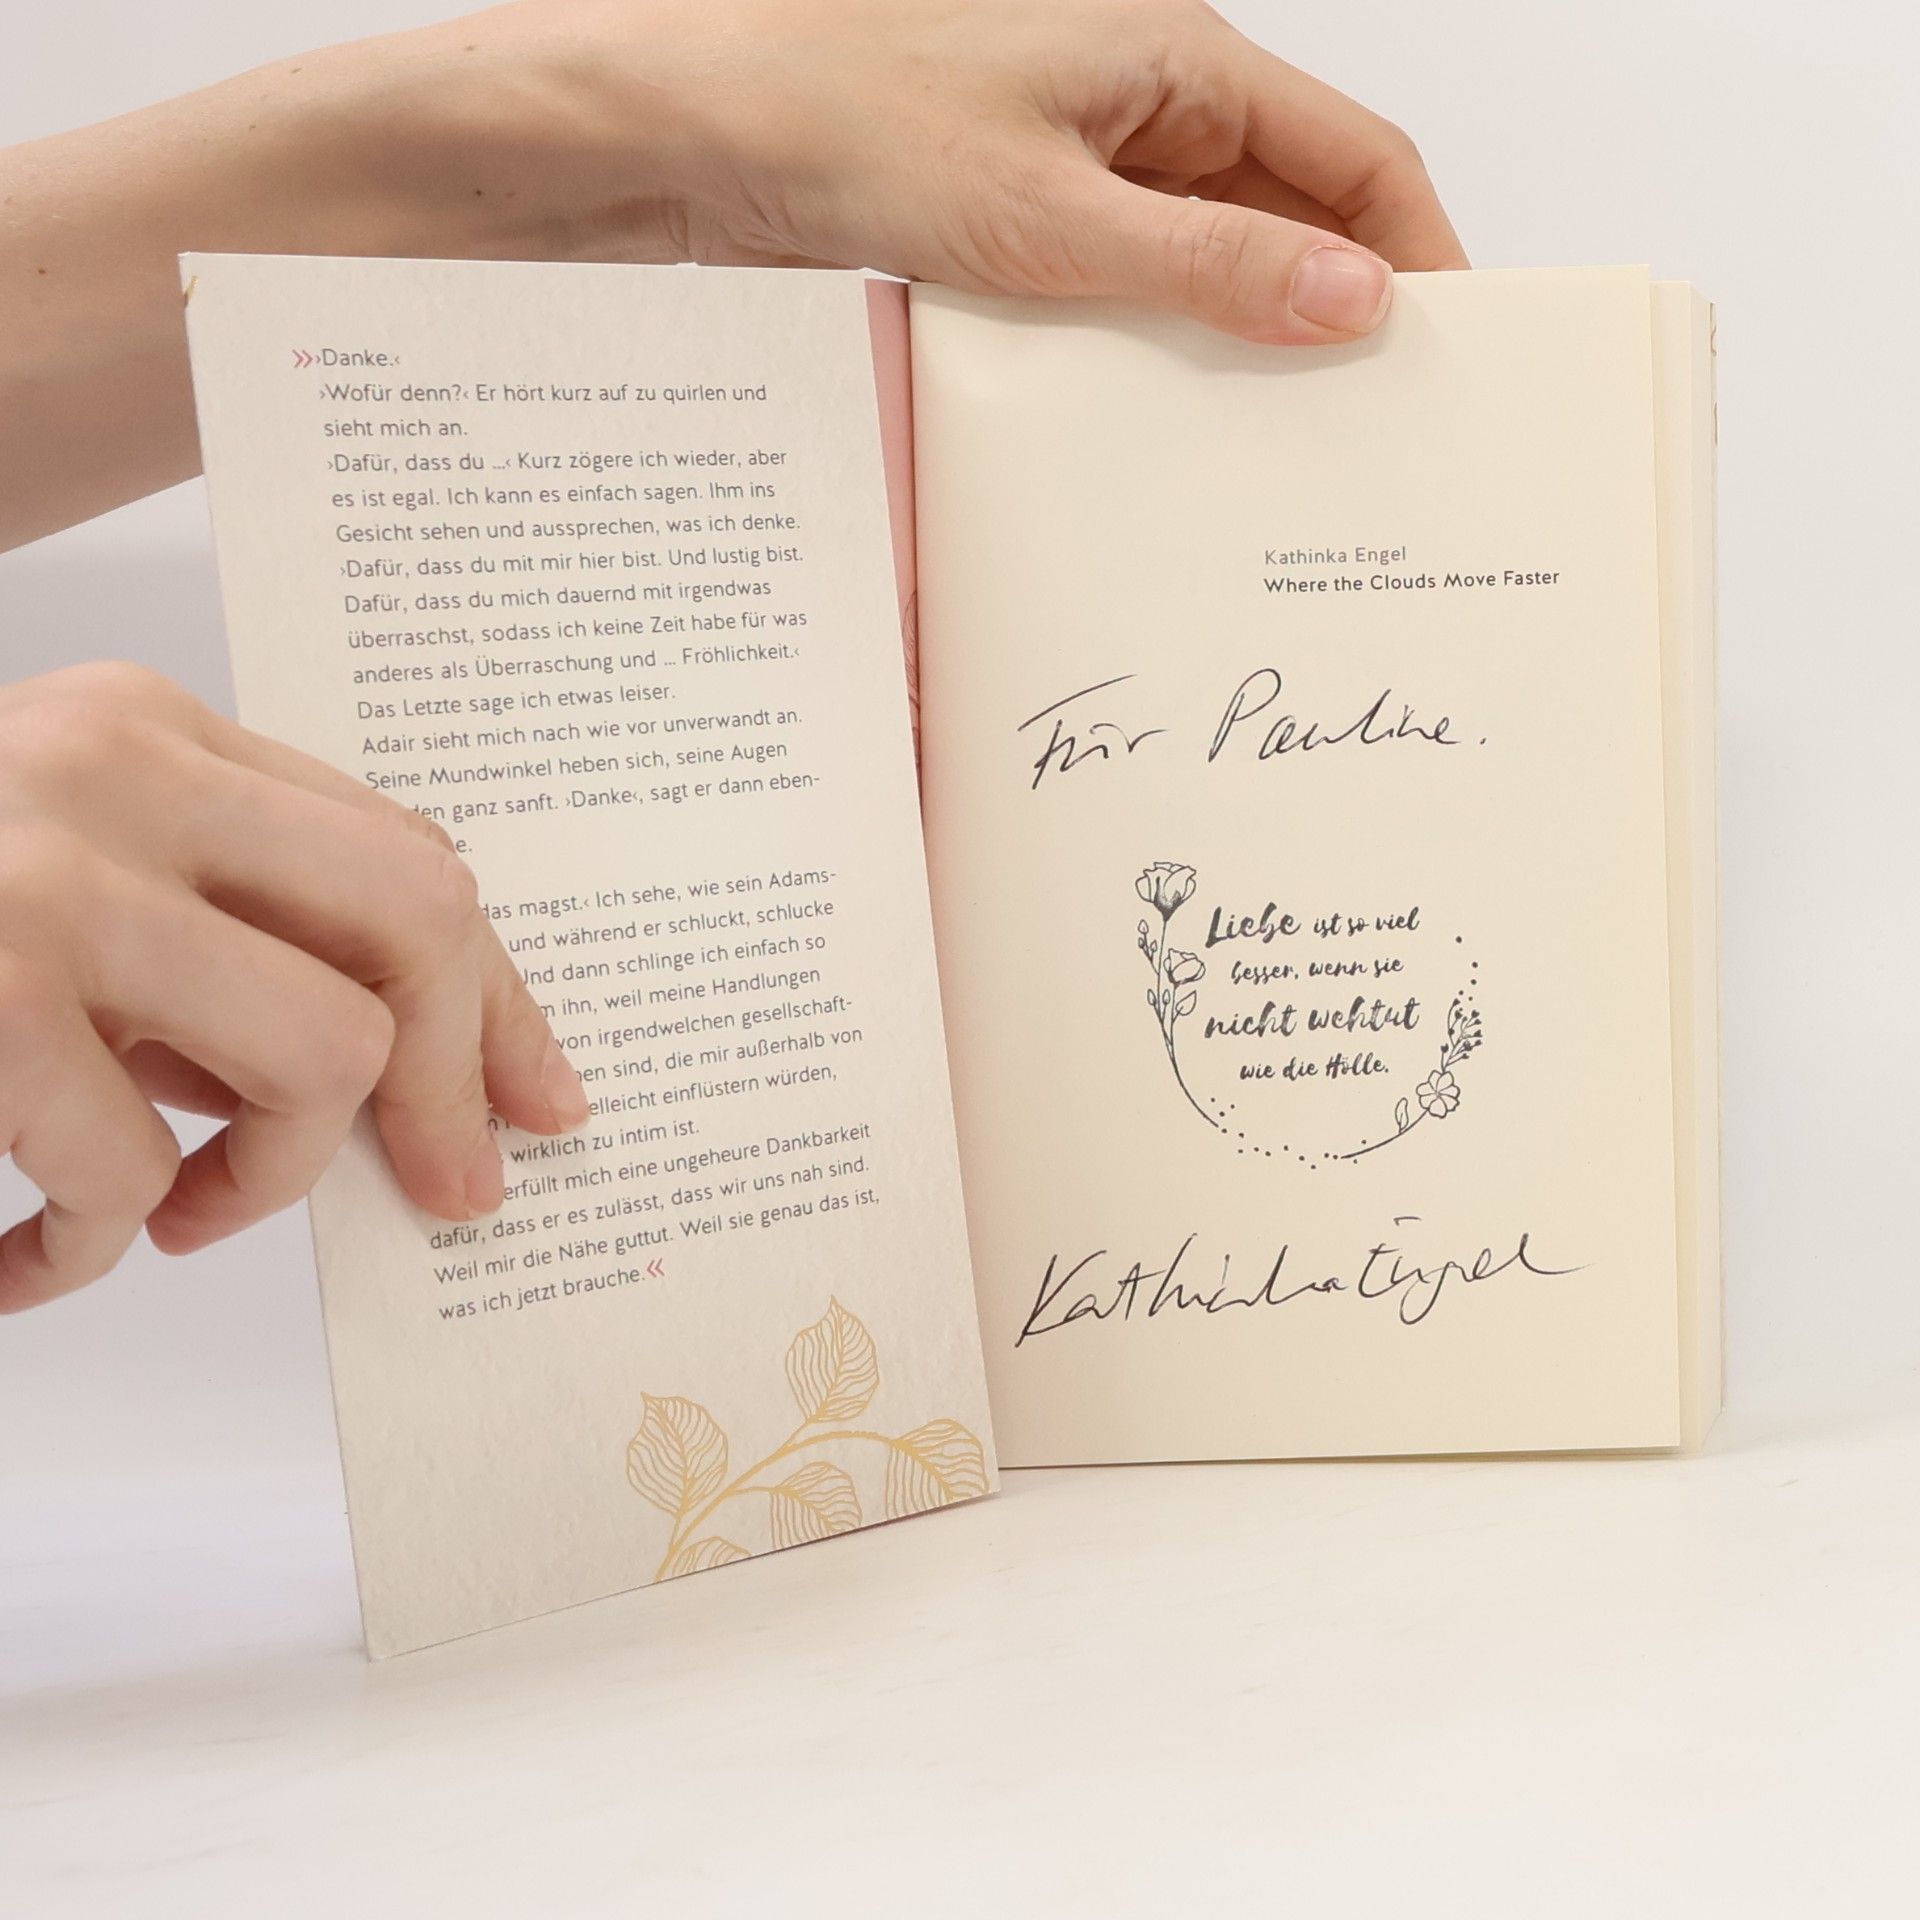 »›Danke.‹
›Wofür denn?‹ Er hört kurz auf zu quirlen und
sieht mich an.
›Dafür, dass du ...‹ Kurz zögere ich wieder, aber
es ist egal. Ich kann es einfach sagen. Ihm ins
Gesicht sehen und aussprechen, was ich denke.
›Dafür, dass du mit mir hier bist. Und lustig bist.
Dafür, dass du mich dauernd mit irgendwas
überraschst, sodass ich keine Zeit habe für was
anderes als Überraschung und ... Fröhlichkeit.‹
Das Letzte sage ich etwas leiser.
Adair sieht mich nach wie vor unverwandt an.
Seine Mundwinkel heben sich, seine Augen
ganz sanft. ›Danke‹, sagt er dann eben-
magst.‹ Ich sehe, wie sein Adams-
und während er schluckt, schlucke
dann schlinge ich einfach so
ihn, weil meine Handlungen
von irgendwelchen gesellschaft-
sind, die mir außerhalb von
einflüstern würden,
wirklich zu intim ist.
erfüllt mich eine ungeheure Dankbarkeit
dafür, dass er es zulässt, dass wir uns nah sind.
Weil mir die Nähe guttut. Weil sie genau das ist,
was ich jetzt brauche.«
Kathinka Engel
Where the Clouds Move Faster
Für Pauline.
Liebe ist so viel
besser, wenn sie
nicht wehtut
wie die Hölle.
Kathinka Engel